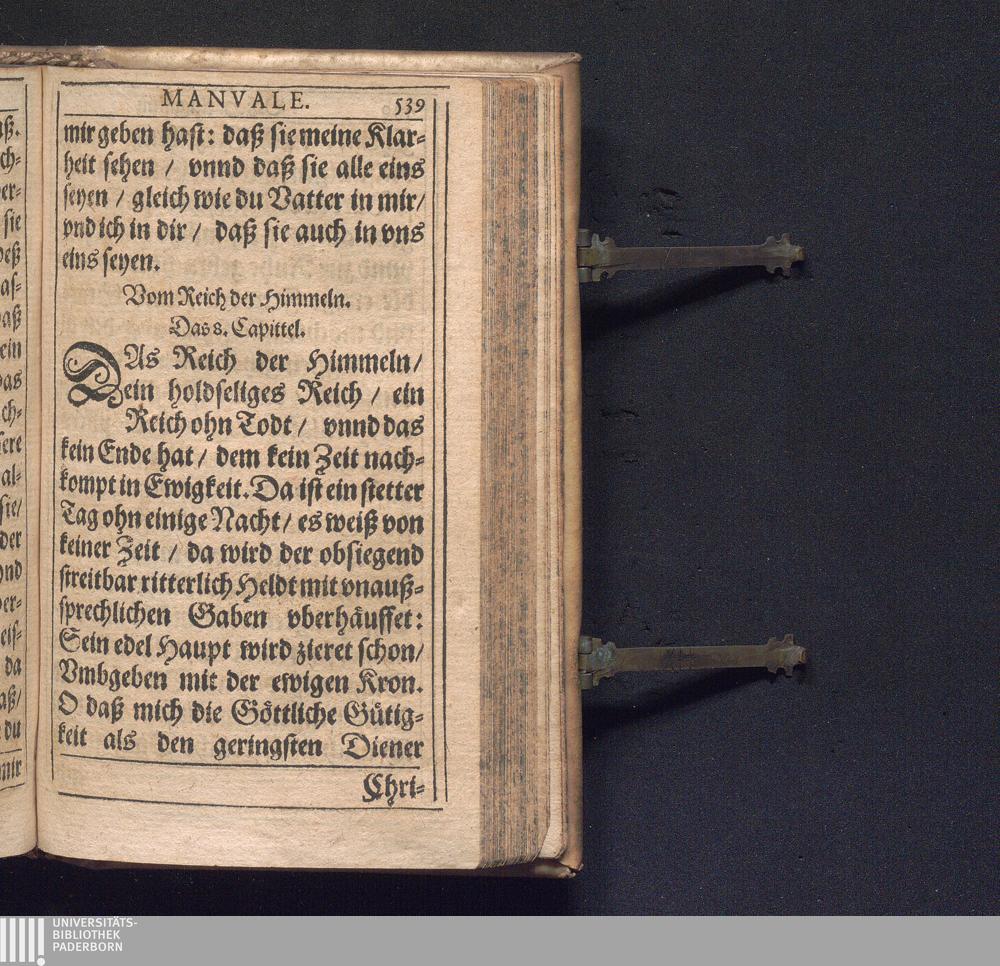 MANVALE. 539
mir geben hast: daß sie meine Klar-
heit sehen / vnnd daß sie alle eins
seyen / gleich wie du Vatter in mir/
vnd ich in dir / daß sie auch in vns
eins seyen.
Vom Reich der Himmeln.
Das 8. Capittel.
DAs Reich der Himmeln/
ein holdseliges Reich / ein
Reich ohn Todt / vnnd das
kein Ende hat / dem kein Zeit nach-
kompt in Ewigkeit. Da ist ein stetter
Tag ohn einige Nacht / es weiß von
keiner Zeit / da wird der obsiegend
streitbar ritterlich Heldt mit vnauß-
sprechlichen Gaben vberhäuffet:
Sein edel Haupt wird zieret schon/
Vmbgeben mit der ewigen Kron.
O daß mich die Göttliche Gütig-
keit als den geringsten Diener
Chri-
UNIVERSITÄTS-
BIBLIOTHEK
PADERBORN